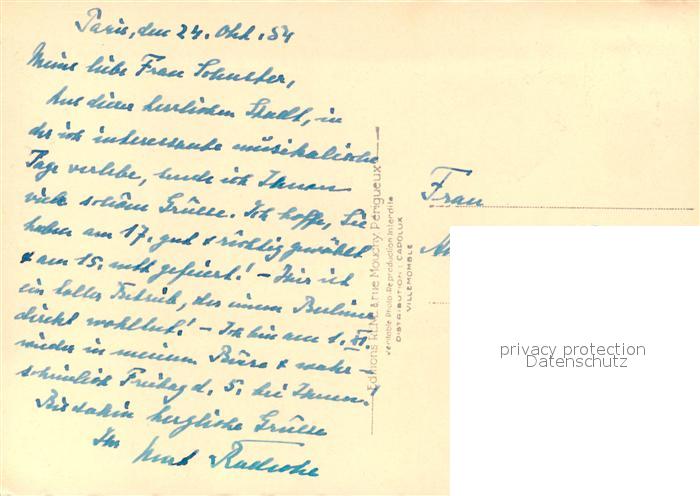 Paris, den 24. Okt. 54
Meine liebe Frau Schuster,
Aus dieser herrlichen Stadt, in
der ich interessante musikalische
Tage verlebe, sende ich Ihnen
viele schöne Grüsse. Ich hoffe, Sie
haben am 17. gut & richtig gewählt
& am 15. nett gefeiert! – Hier ist
ein toller Betrieb, der einem Berliner
direkt wohltut! – Ich bin am 1. XI.
wieder in meinem Büro & wahr-
scheinlich Freitag d. 5. bei Ihnen!
Bis dahin herzliche Grüsse
Ihr
Frau
Editions RENE
Mouchy Périgueux
Véritable Photo-Reproduction Interdite
DISTRIBUTION: CAPOLUX
VILLEMOMBLE
privacy protection
Datenschutz